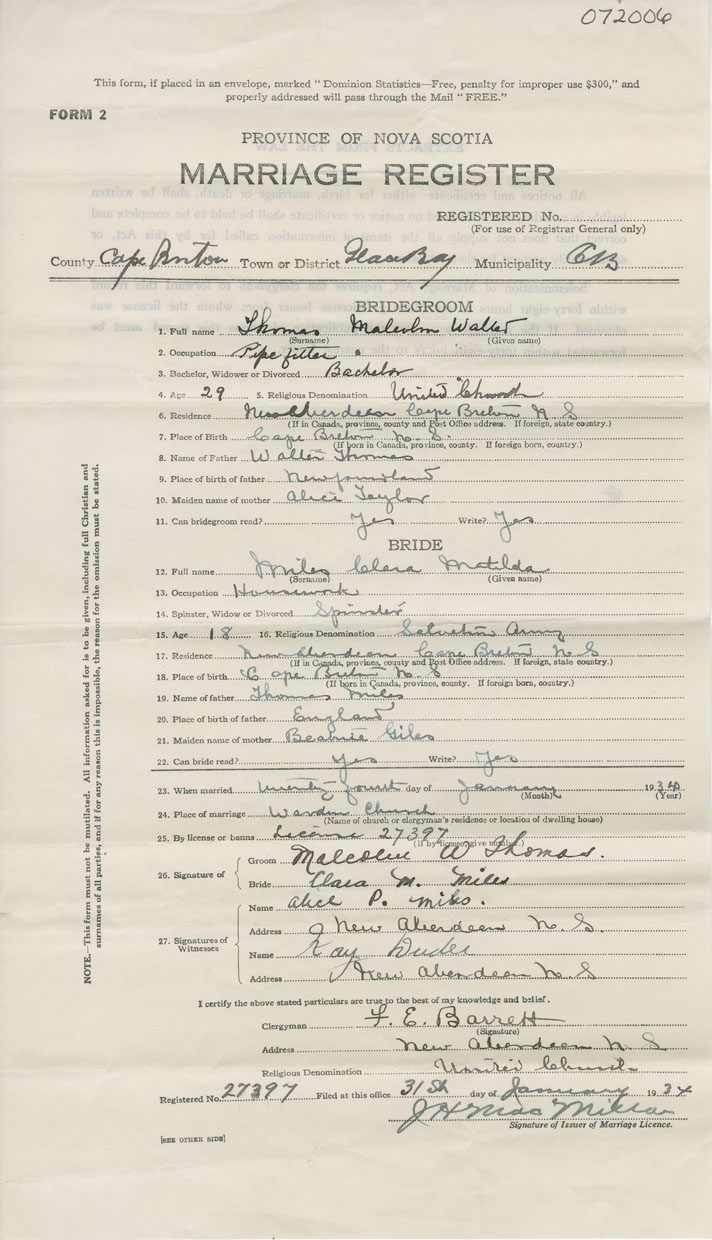 072006
This form, if placed in an envelope, marked "Dominion Statistics—Free, penalty for improper use $300," and
properly addressed will pass through the Mail "FREE."
FORM 2
PROVINCE OF NOVA SCOTIA
MARRIAGE REGISTER
REGISTERED No.
(For use of Registrar General only)
County Cape Breton Town or District Glace Bay Municipality CB
BRIDEGROOM
1. Full name Thomas Malcolm Walter
(Surname) (Given name)
2. Occupation Pipe fitter
3. Bachelor, Widower or Divorced Bachelor
4. Age 29 5. Religious Denomination United Church
6. Residence New Aberdeen Cape Breton N S
(If in Canada, province, county and Post Office address. If foreign, state country.)
7. Place of Birth Cape Breton N. S.
(If born in Canada, province, county. If foreign born, country.)
8. Name of Father Walter Thomas
9. Place of birth of father Newfoundland
10. Maiden name of mother Alice Taylor
11. Can bridegroom read? Yes Write? Yes
BRIDE
12. Full name Miles Clara Matilda
(Surname) (Given name)
13. Occupation Housework
14. Spinster, Widow or Divorced Spinster
15. Age 18 16. Religious Denomination Salvation Army
17. Residence New Aberdeen Cape Breton N. S
(If in Canada, province, county and Post Office address. If foreign, state country.)
18. Place of birth Cape Breton N. S
(If born in Canada, province, county. If foreign born, country.)
19. Name of father Thomas Miles
20. Place of birth of father England
21. Maiden name of mother Giles
22. Can bride read? Yes Write? Yes
23. When married twenty fourth day of January 1934
(Month) (Year)
24. Place of marriage Warden Church
(Name of church or clergyman's residence or location of dwelling house)
25. By license or banns License 27397
(If by license, give number.)
26. Signature of
Groom Malcolm W Thomas.
Bride Clara M. Miles
27. Signatures of Witnesses
Name Alice P. Miles.
Address New Aberdeen N. S.
Name Kay
Address New Aberdeen N. S
I certify the above stated particulars are true to the best of my knowledge and belief.
Clergyman F. E. Barrett
(Signature)
Address New Aberdeen N S
Religious Denomination United Church
Registered No. 27397 Filed at this office 31st day of January 1934
J H Mac Millan
Signature of Issuer of Marriage Licence.
[SEE OTHER SIDE]
NOTE.—This form must not be mutilated. All information asked for is to be given, including full Christian and
surnames of all parties, and if for any reason this is impossible, the reason for the omission must be stated.